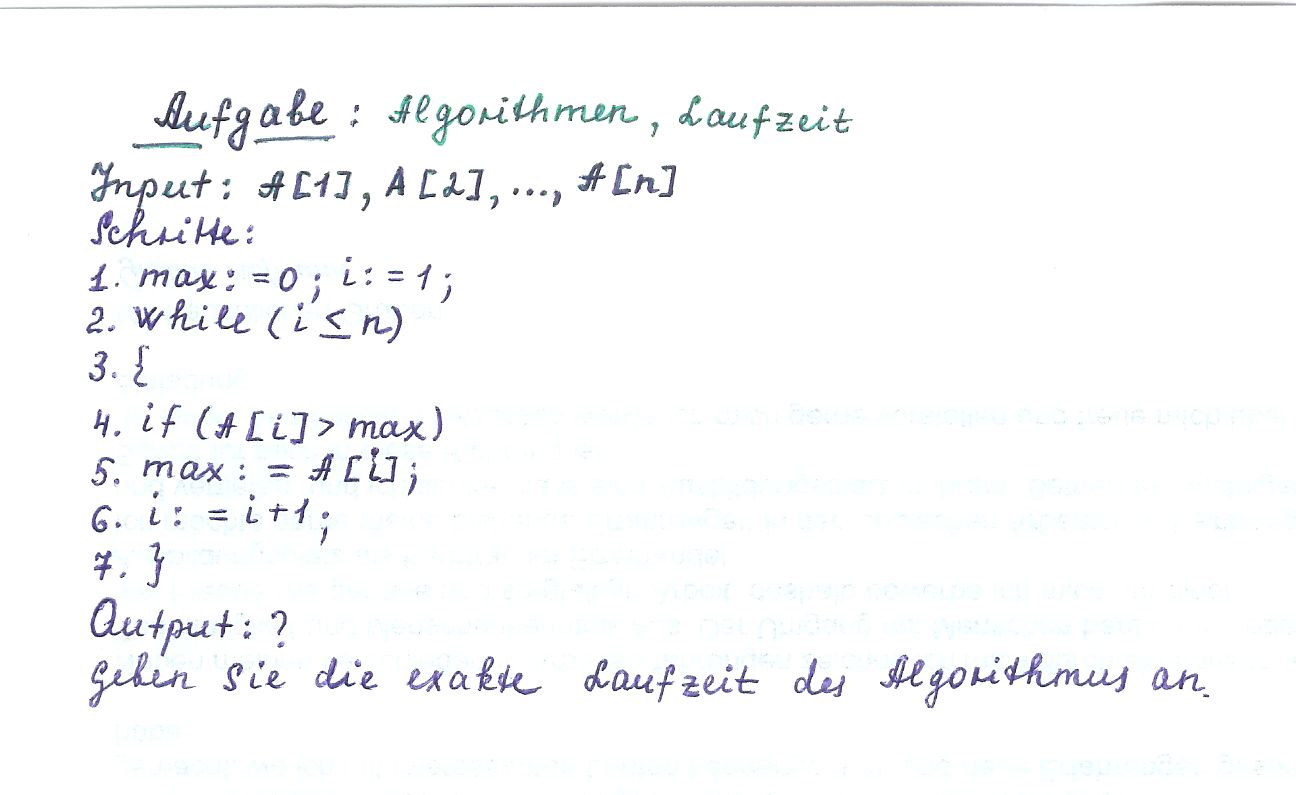 Aufgabe: Algorithmen, Laufzeit
Input: A[1], A[2], ..., A[n]
Schritte:
1. max: = 0; i: = 1;
2. while (i ≤ n)
3. {
4. if (A[i] > max)
5. max: = A[i];
6. i: = i+1;
7. }
Output: ?
Geben Sie die exakte Laufzeit des Algorithmus an.